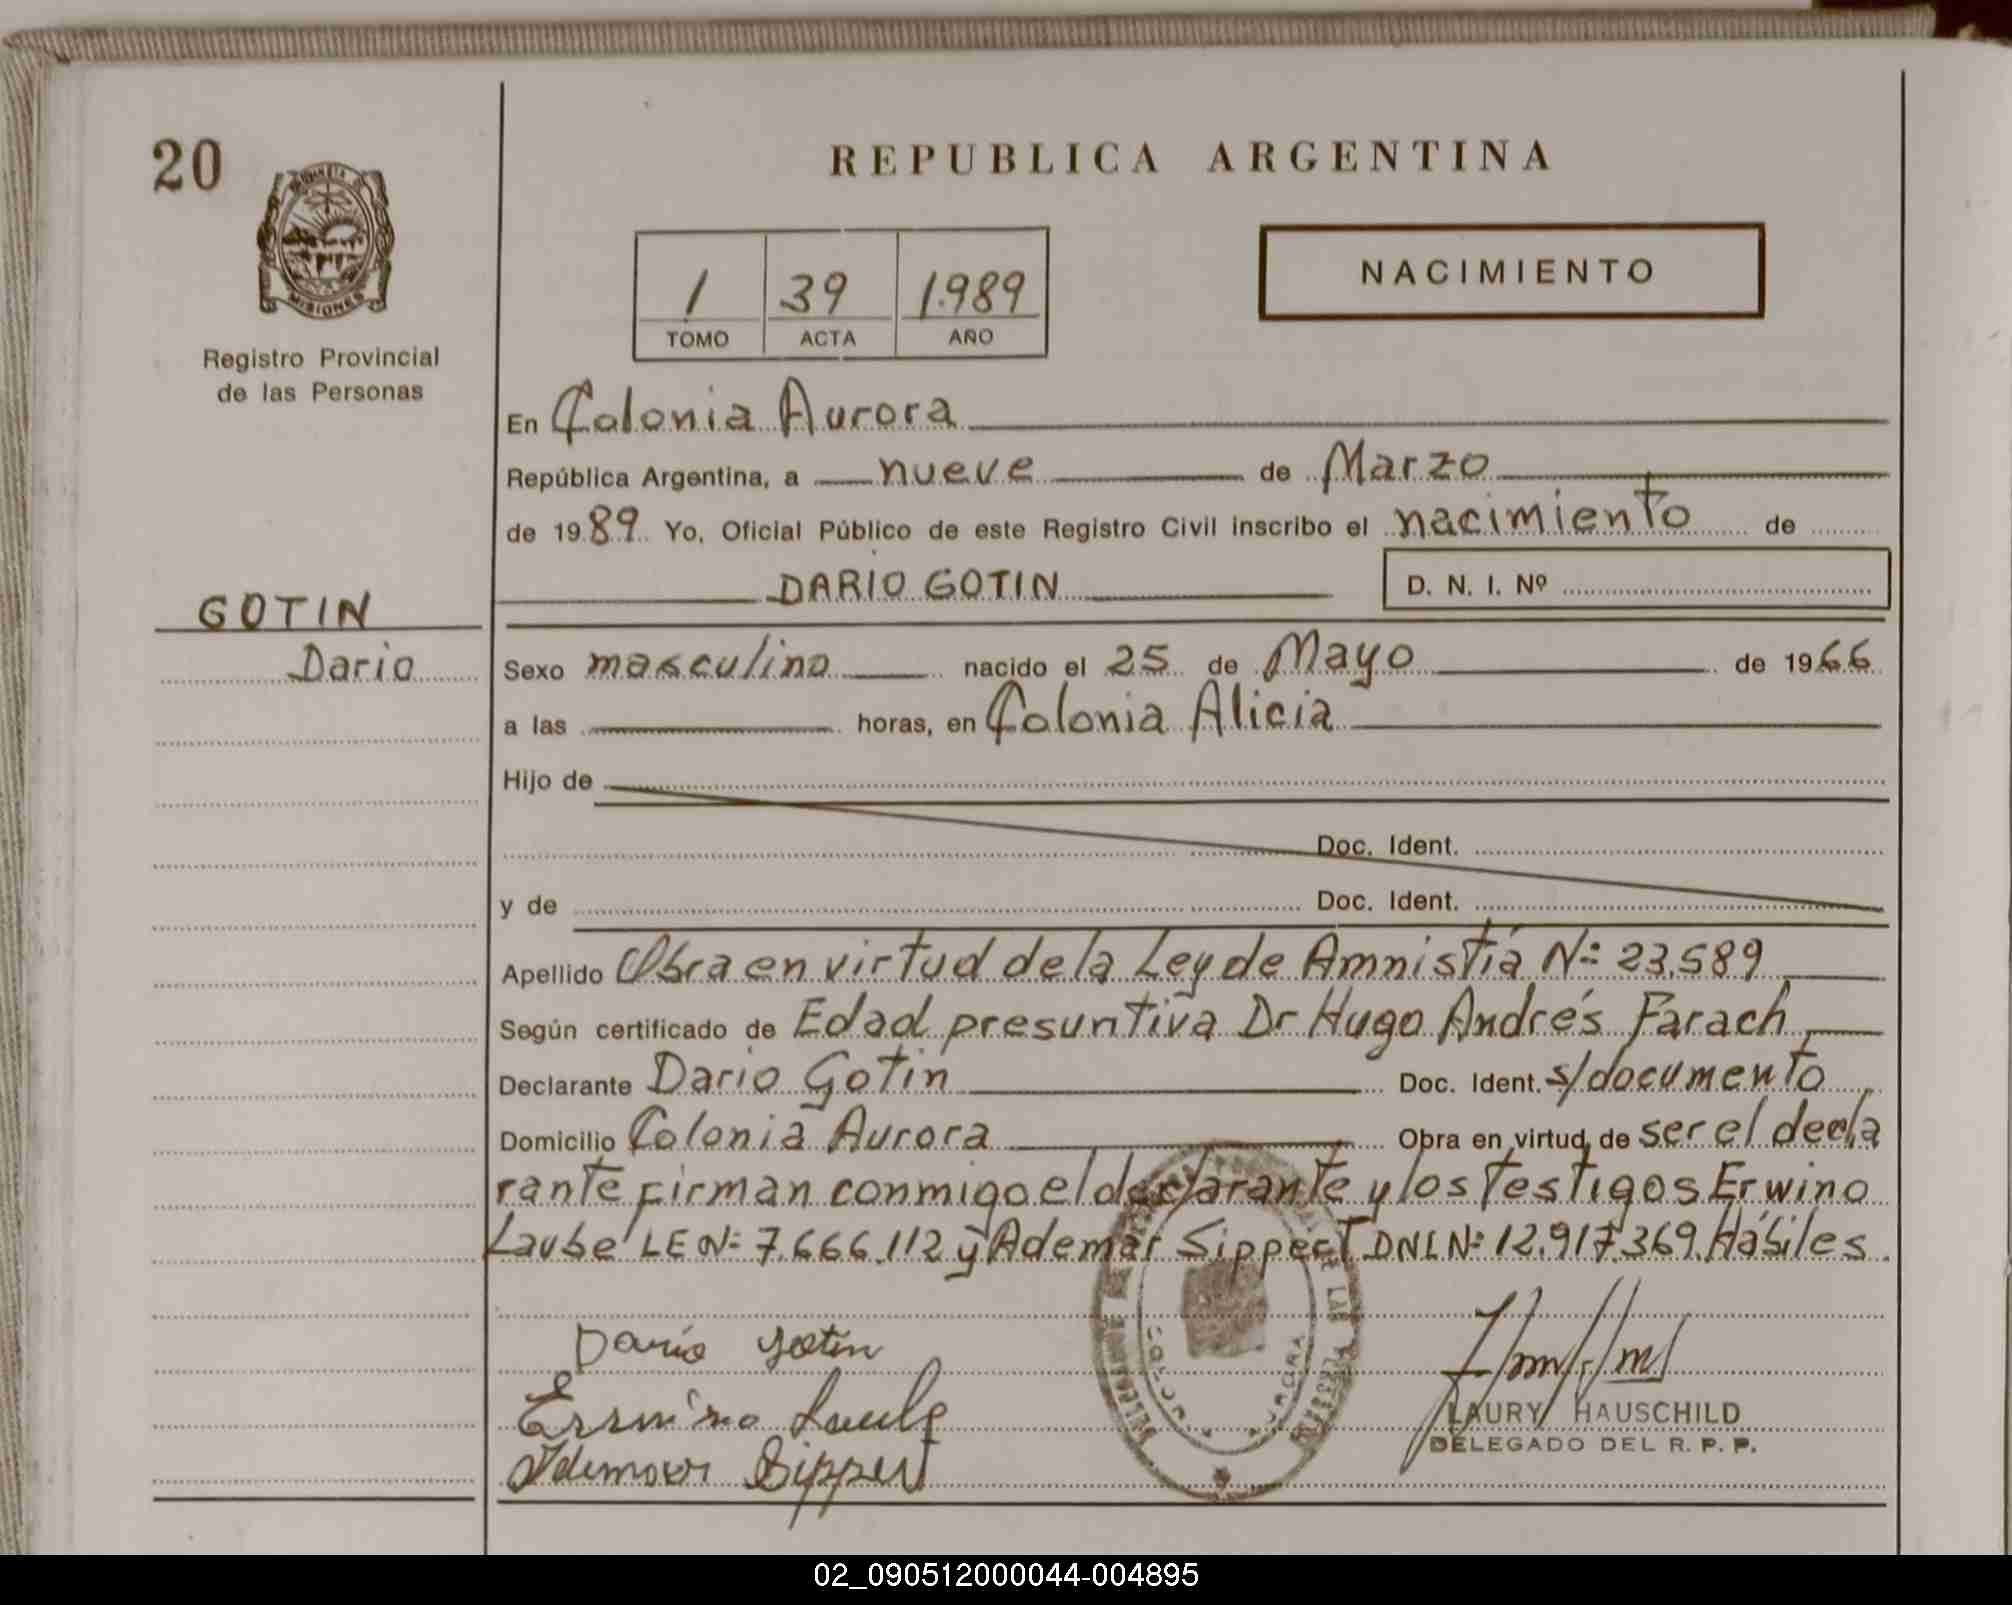 20
REPUBLICA ARGENTINA
MISIONES
Registro Provincial
de las Personas
1 39 1.989
TOMO ACTA AÑO
NACIMIENTO
En Colonia Aurora
República Argentina, a nueve de Marzo
de 1989 Yo, Oficial Público de este Registro Civil inscribo el nacimiento de
DARIO GOTIN D. N. I. Nº
GOTIN
Dario
Sexo masculino nacido el 25 de Mayo de 1966
a las horas, en Colonia Alicia
Hijo de
Doc. Ident.
y de Doc. Ident.
Apellido Obra en virtud de la Ley de Amnistía Nº 23.589
Según certificado de Edad presuntiva Dr Hugo Andrés Farach
Declarante Dario Gotin Doc. Ident. s/documento
Domicilio Colonia Aurora Obra en virtud de ser el decla
rante firman conmigo el declarante y los testigos Erwino
Laube LE Nº 7.666.112 y Ademar Sippert DNI Nº 12.917.369. Hábiles
Darío Gotin
Erwino Laube
Ademar Sippert
LAURY HAUSCHILD
DELEGADO DEL R. P. P.
02_090512000044-004895